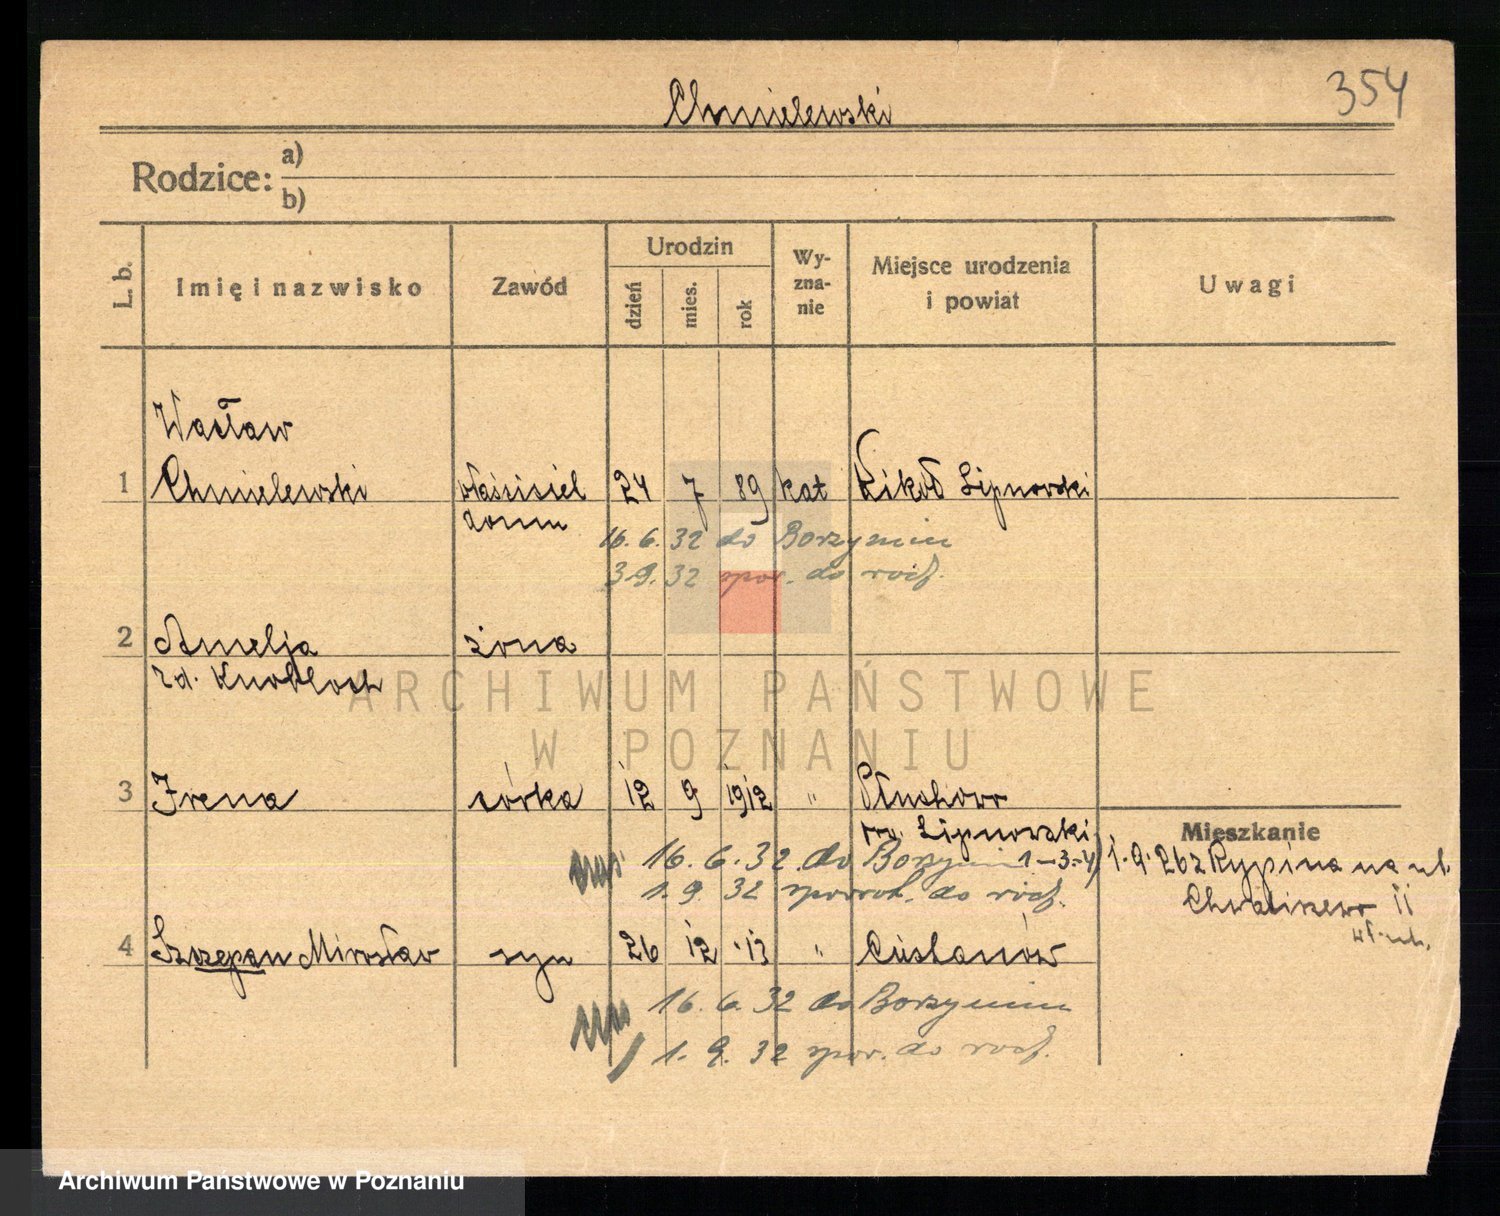 354
Chmielewski
Rodzice: a)
b)
L. b.
Imię i nazwisko
Zawód
Urodzin
dzień
mies.
rok
Wy-
zna-
nie
Miejsce urodzenia
i powiat
Uwagi
Wacław
1 Chmielewski właścisiel 24 7 89 kat Kikoł Lipnowski
domu
16. 6. 32 do Borzymin
3.9. 32 spow. do rodz.
2 Amelja żona
zd. Knobloch
3 Irena córka 12 9 1912 "
pow. Lipnowski
Mieszkanie
16. 6. 32. do Borzymin 1-3-4) 1.9.26 z Rypina na ul.
1. 9. 32 spowrot. do rodz. Chwaliszewo 11
4 Szczepan Mirosław syn 26 12 13 "
16. 6. 32 do Borzymin
1. 9. 32 spow. do rodz.
ARCHIWUM PAŃSTWOWE
W POZNANIU
Archiwum Państwowe w Poznaniu